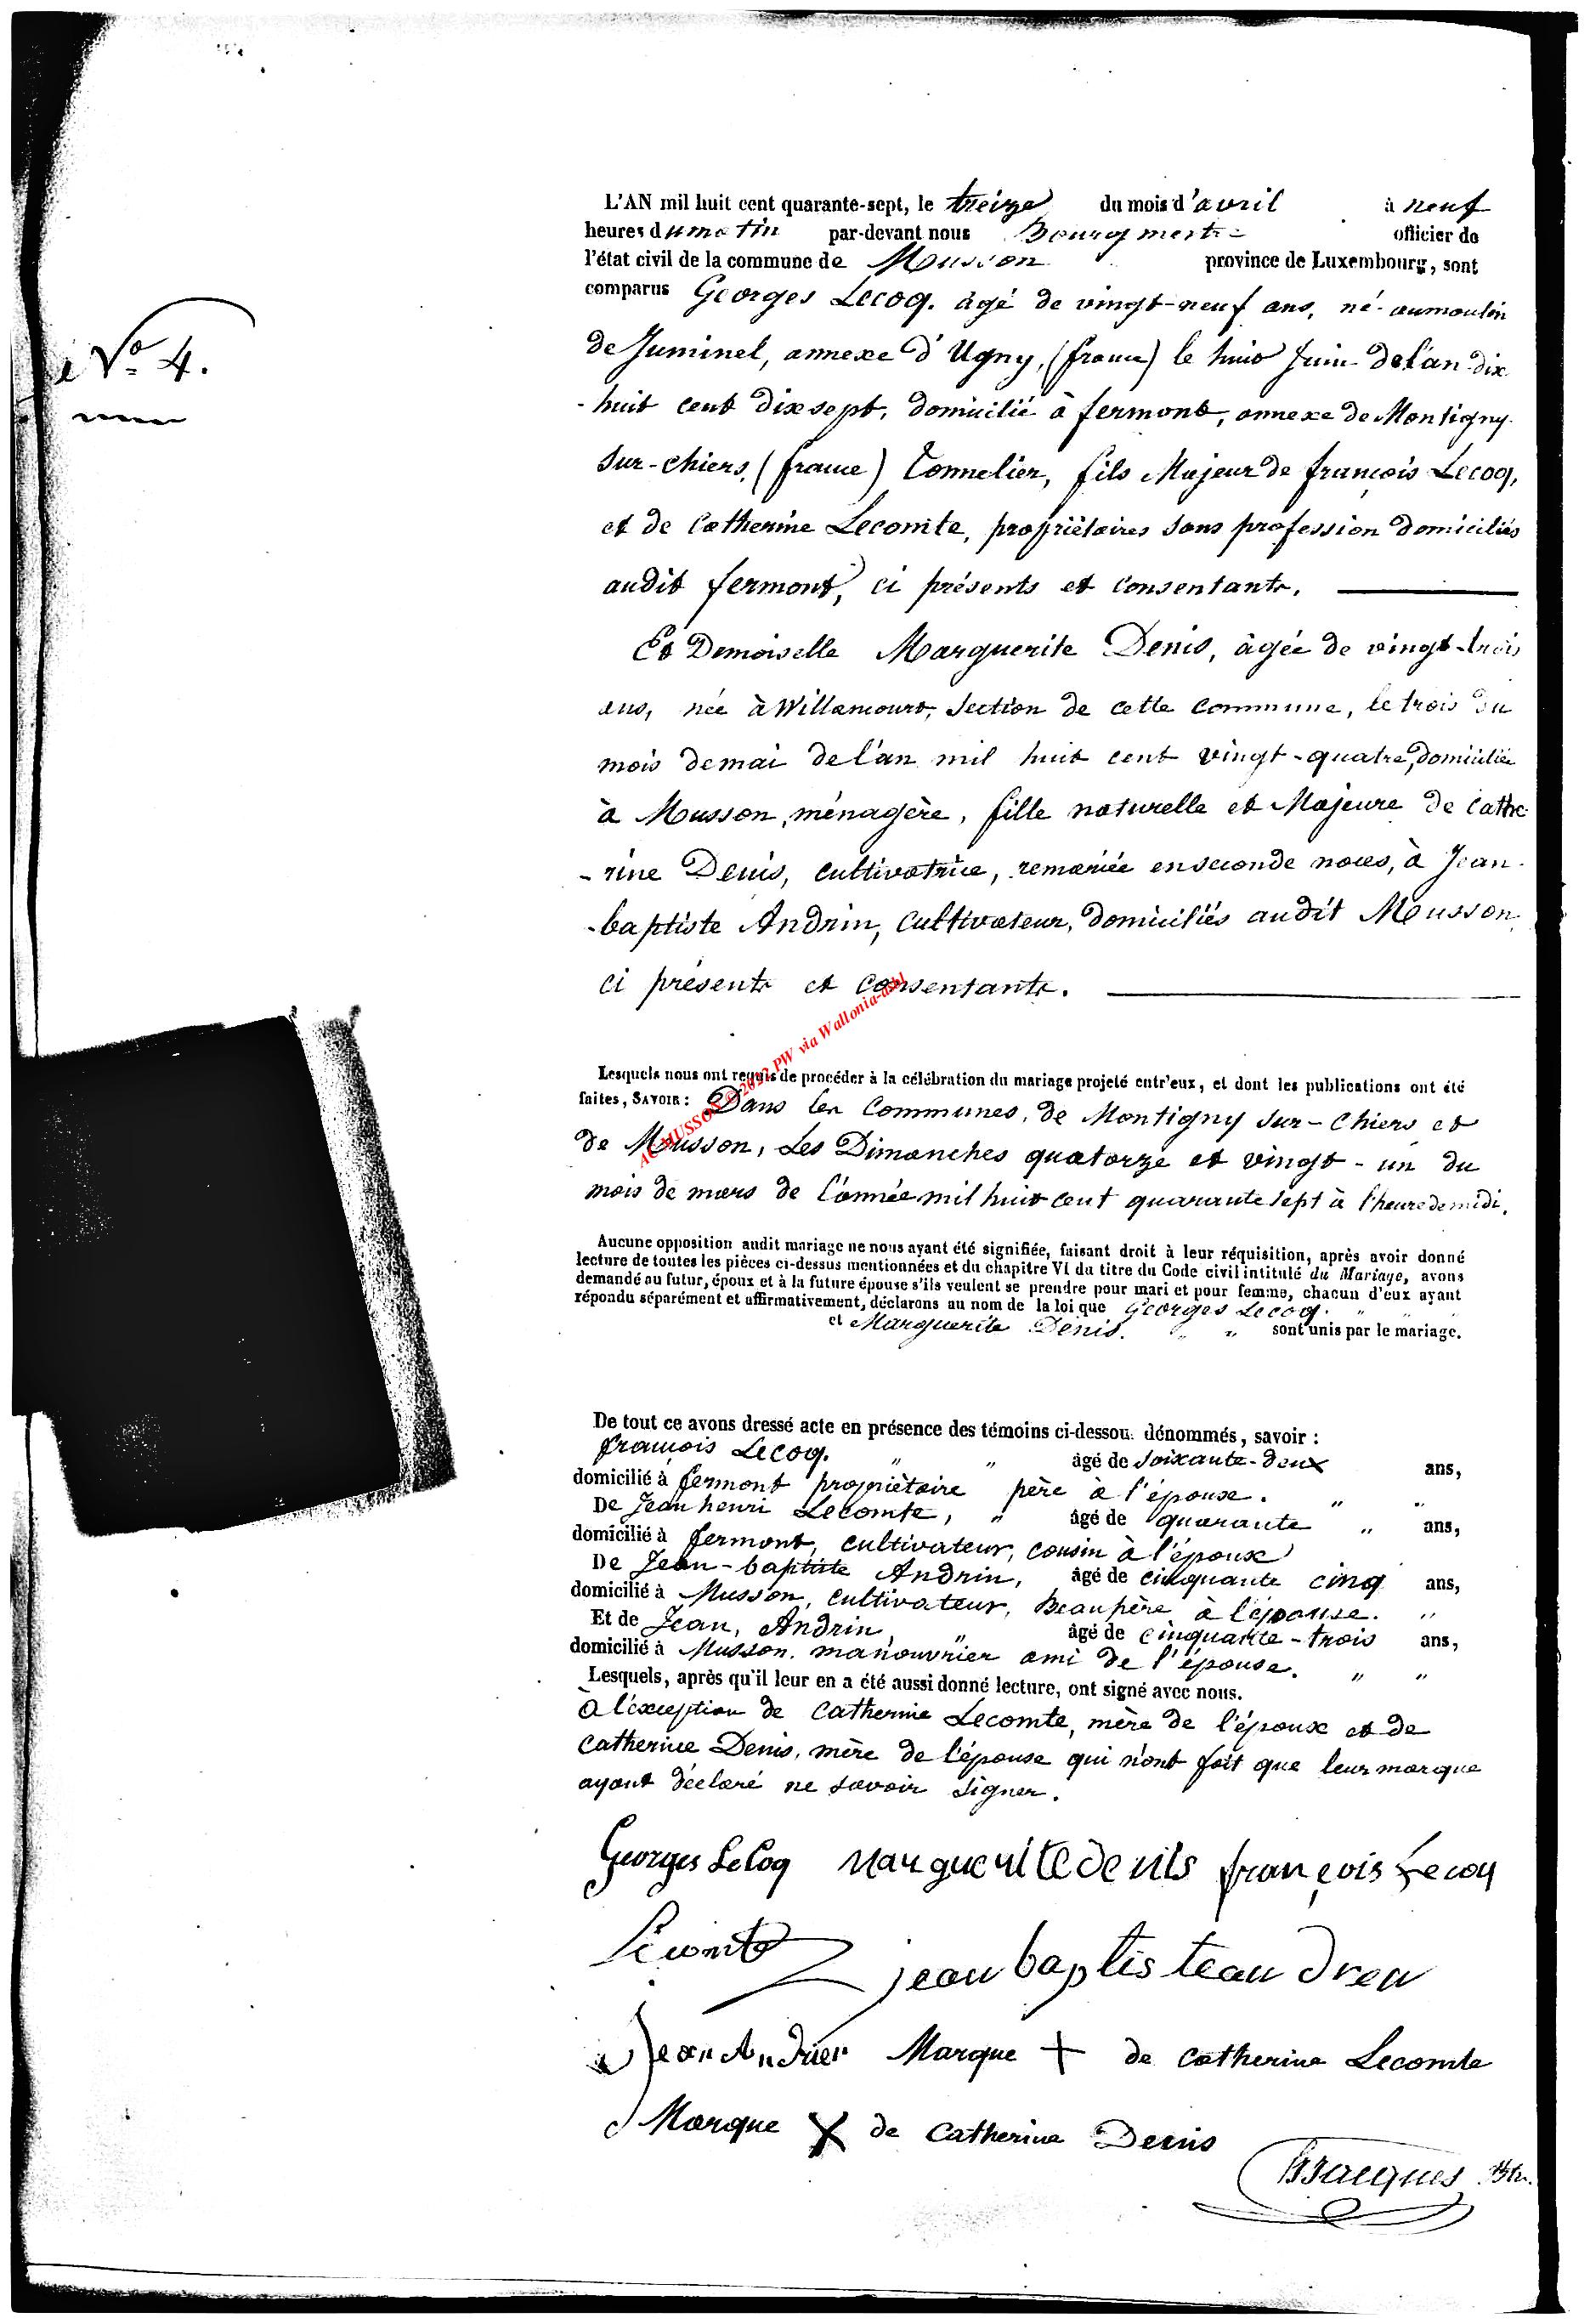 L'AN mil huit cent quarante-sept, le treize du mois d'avril à neuf
heures du matin par-devant nous Bourgmestre officier de
l'état civil de la commune de Musson province de Luxembourg, sont
comparus Georges Lecoq. âgé de vingt-neuf ans, né au moulin
N° 4.
de Juminel, annexe d'Ugny, (france) le huit Juin de l'an dix
-huit cent dix sept, domicilié à fermont, annexe de Montigny
sur-chiers, (france) Tonnelier, fils Majeur de françois Lecoq,
et de Catherine Lecomte, propriétaires sans profession domiciliés
audit fermont, ci présents et consentants.
Et Demoiselle Marguerite Denis, âgée de vingt-trois
ans, née à Willancourt, section de cette commune, le trois du
mois de mai de l'an mil huit cent vingt-quatre, domiciliée
à Musson, ménagère, fille naturelle et Majeure de Cathe
-rine Denis, cultivatrice, remariée en seconde noces, à Jean-
-baptiste Andrin, cultivateur, domiciliés audit Musson,
ci présents et consentants.
AC MUSSON © 2022 PW via Wallonia-asbl
Lesquels nous ont requis de procéder à la célébration du mariage projeté entr'eux, et dont les publications ont été
faites, SAVOIR : Dans les Communes, de Montigny sur-Chiers et
de Musson, Les Dimanches quatorze et vingt-un du
mois de mars de l'année mil huit cent quarante sept à l'heure de midi.
Aucune opposition audit mariage ne nous ayant été signifiée, faisant droit à leur réquisition, après avoir donné
lecture de toutes les pièces ci-dessus mentionnées et du chapitre VI du titre du Code civil intitulé du Mariage, avons
demandé au futur, époux et à la future épouse s'ils veulent se prendre pour mari et pour femme, chacun d'eux ayant
répondu séparément et affirmativement, déclarons au nom de la loi que Georges Lecoq. " " "
et Marguerite Denis. " " sont unis par le mariage.
De tout ce avons dressé acte en présence des témoins ci-dessou. dénommés, savoir :
françois Lecoq. " " âgé de soixante-deux ans,
domicilié à fermont propriétaire père à l'épouse. " "
De Jean henri Lecomte, " âgé de quarante " " ans,
domicilié à fermont, cultivateur, cousin à l'époux
De Jean-baptiste Andrin, âgé de cinquante cinq ans,
domicilié à Musson, cultivateur, Beau père à l'épouse. "
Et de Jean, Andrin " âgé de cinquante-trois ans,
domicilié à Musson, manouvrier ami de l'épouse. " "
Lesquels, après qu'il leur en a été aussi donné lecture, ont signé avec nous.
à l'exception de Catherine Lecomte, mère de l'époux et de
Catherine Denis, mère de l'épouse qui n'ont fait que leur marque
ayant déclaré ne savoir signer.
Georges LeCoq Marguerite denils françois Lecoq
Lecomte jean baptiste andren
Jean Andrien Marque + de Catherine Lecomte
Marque X de Catherine Denis
Jacques